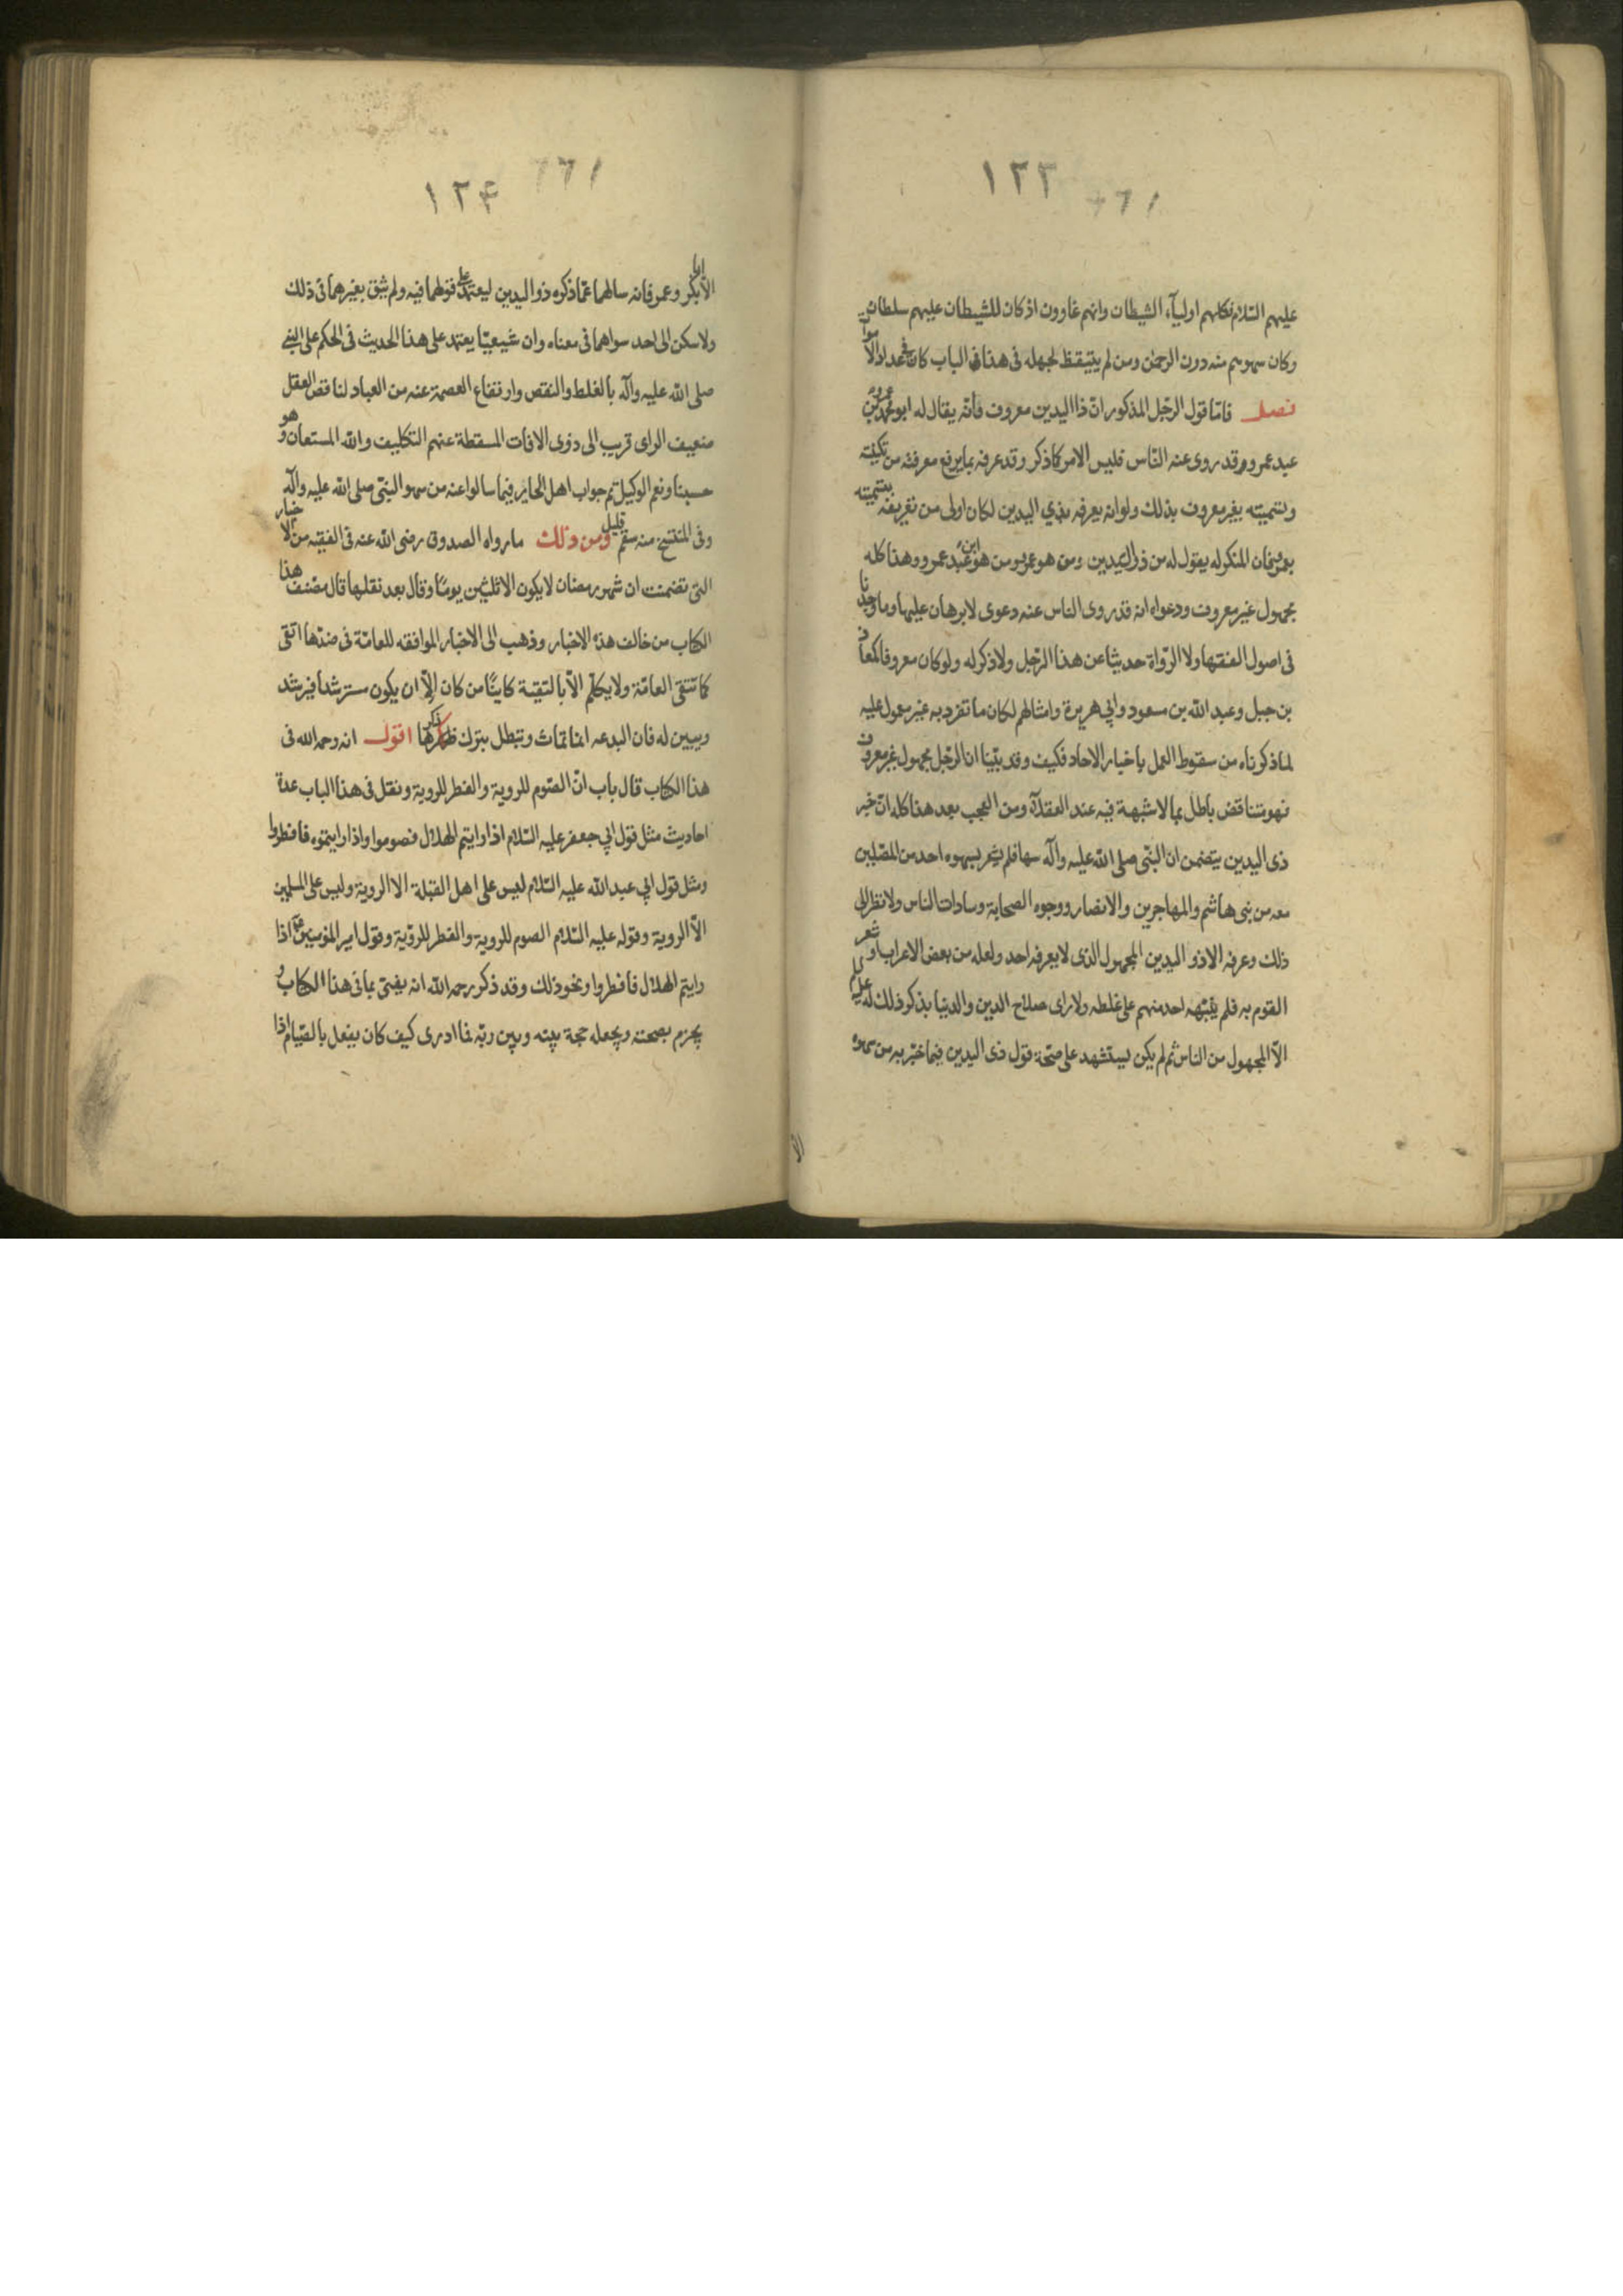 ١٢٣
عليهم السّلام فكلهم اولياۤء الشيطان وانهم غاوون اذ كان للشيطان عليهم سلطان
وكان سهوهم منه دون الرحمن ومن لم يتيقظ لجهله فى هذا الباب كان فى عداد الاموات
فصل فامّا قول الرّجل المذكور انّ ذا اليدين معروف فانّه يقال له ابو محمد عمير بن
عبد عمرو وقد روى عنه النّاس فليس الامر كما ذكر وقد عرفه بما يرفع معرفته من تكنيته
وتسميته بغير معروف بذلك ولو انه يعرفه بذي اليدين لكان اولى من تعريفه بتسميته
بعمير فان المنكر له يقول له من ذو اليدين ومن هو عمير ومن هو ابن عبد عمرو وهذا كله
مجهول غير معروف ودعواه انه قد روى الناس عنه دعوى لا برهان عليها وما وجدنا
فى اصول الفقها ولا الرّواة حديثا عن هذا الرّجل ولا ذكر له ولو كان معروفا كمعاذ
بن جبل وعبد الله بن مسعود وابي هريرة وامثالهم لكان ما تفرد به غير معمول عليه
لما ذكرناه من سقوط العمل باخبار الاحاد فكيف وقد بيّنا انا الرّجل مجهول غير معروف
فهو متناقض باطل بما لا شبهة فيه عند العقلاۤء ومن العجب بعد هذا كله انّ خبر
ذى اليدين يتضمن ان النبّى صلى الله عليه وآله سها فلم يشعر بسهوه احد من المصّلين
معه من بنى هاشم والمهاجرين والانصار ووجوه الصحابة وسادات الناس ولا نظر الى
ذلك وعرفه الا ذو اليدين المجهول الذى لا يعرفه احد ولعله من بعض الاعراب او شعر
القوم به فلم ينبّهه احد منهم على غلطه ولا راى صلاح الدين والدنيا بذكر ذلك له عليه السلام
الاّ المجهول من الناس ثم لم يكن ليستشهد على صحّة قول ذى اليدين فيما خبّر به من سهوه
الا
١٢۴
الا ابا بكر وعمر فانه سالهما عمّا ذكره ذو اليدين ليعتمد على قولهما فيه ولم يثق بغيرهما فى ذلك
ولا سكن الى احد سواهما فى معناه وان شيعيّا يعتمد على هذا الحديث فى الحكم على النبي
صلى الله عليه وآله بالغلط والنقص وارتفاع العصمة عنه من العباد لناقص العقل
ضعيف الراى قريب الى ذوى الافات المسقطة عنهم التكليف والله المستعان وهو
حسبنا ونعم الوكيل تم جواب اهل الحاير فيما سالوا عنه من سهو النبّى صلى الله عليه وآله
وفى المنتسخ منه سقم قليل ومن ذلك ما رواه الصدوق رضى الله عنه فى الفقيه من الاخبار
التى تضمنت ان شهر رمضان لا يكون الا ثلثين يومًا وقال بعد نقلها قال مصّنف هذا
الكتاب من خالف هذه الاخبار وذهب الى الاخبار الموافقه للعامّة فى ضدّها اتقى
كما تتقى العامّة ولا يكلّم الاّ بالتقيّة كاينًا من كان الاّ ان يكون مسترشدا فيرشد
ويبين له فان البدعه انما تماث وتبطل بترك ذكرها اقول انه رحمه الله فى
هذا الكتاب قال باب انّ الصّوم للروية والفطر للروية ونقل فى هذا الباب عدة
احاديث مثل قول ابي جعفر عليه السّلام اذا رايتم الهلال فصوموا واذا رايتموه فافطروا
ومثل قول ابي عبد الله عليه السّلام ليس على اهل القبلة الا الروية وليس على المسلمين
الاّ الروية وقوله عليه السّلام الصوم للروية والفطر للروّية وقول امير المؤمنين ع اذا
رايتم الهلال فافطروا ونحو ذلك وقد ذكر رحمه الله انه يفتى بما فى هذا الكتاب و
يجزم بصحته ويجعله حجة بينه وبين ربّه فما ادرى كيف كان يفعل بالصّيام اذا